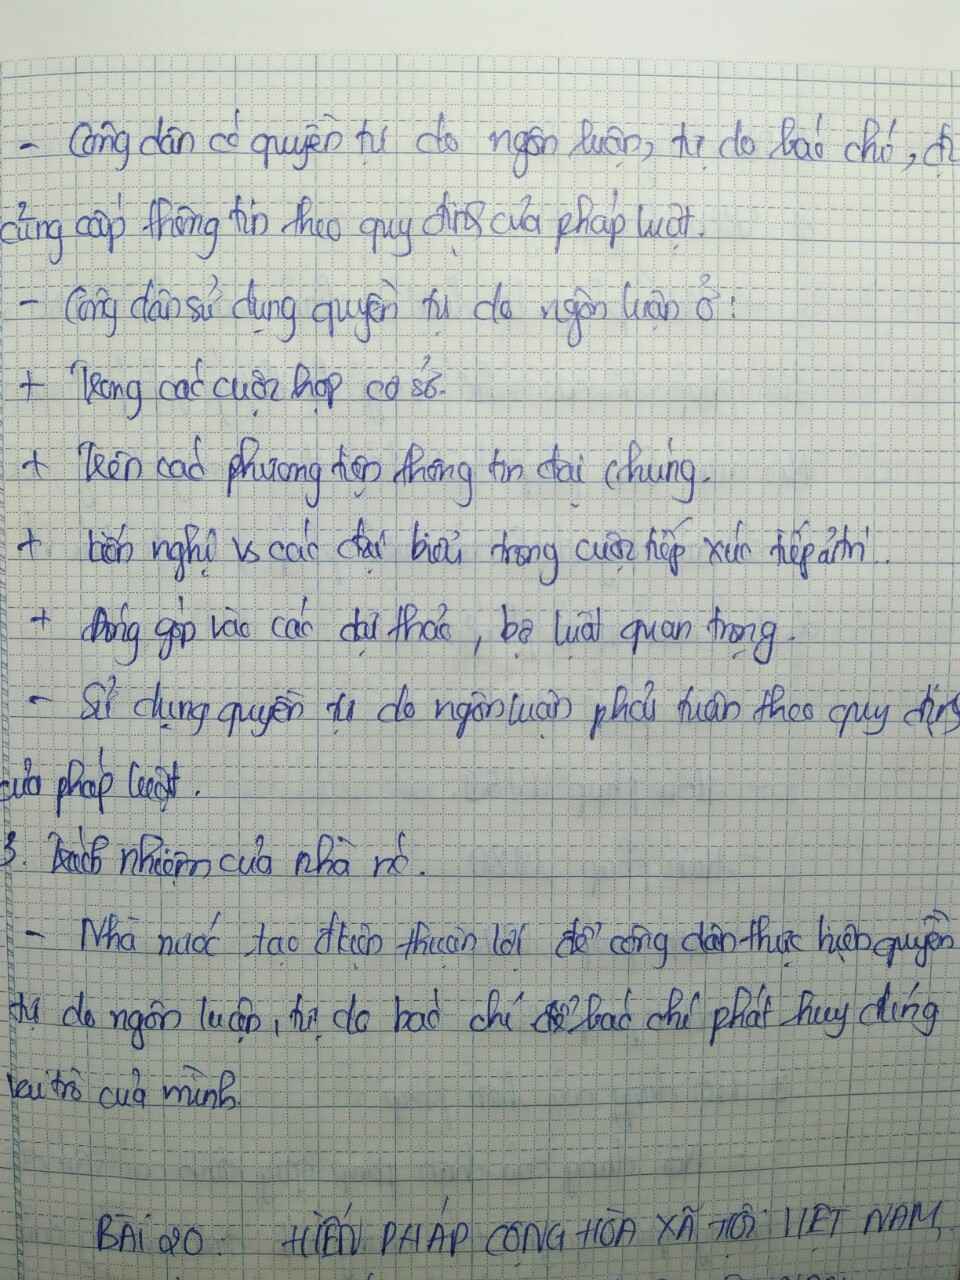 - Công dân có quyền tự do ngôn luận, tự do báo chí, đc
cung cấp thông tin theo quy định của pháp luật.
- Công dân sử dụng quyền tự do ngôn luận ở:
+ Trong các cuộc họp cơ sở.
+ Trên các phương tiện thông tin đại chúng.
+ kiến nghị vs các đại biểu trong cuộc tiếp xúc tiếp
+ đóng góp vào các dự thảo, bộ luật quan trọng.
- Sử dụng quyền tự do ngôn luận phải tuân theo quy định
của pháp luật.
3. Trách nhiệm của nhà nc.
- Nhà nước tạo đkiện thuận lợi để công dân thực hiện quyền
tự do ngôn luận, tự do báo chí để báo chí phát huy đúng
vai trò của mình.
BÀI 20: HIẾN PHÁP CỘNG HÒA XÃ HỘI VIỆT NAM